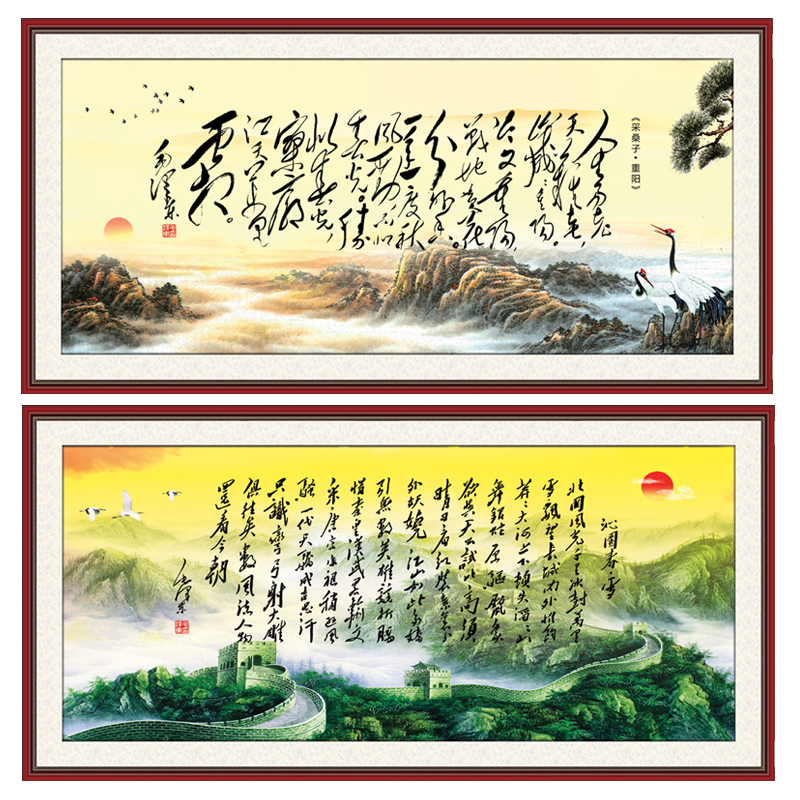 《采桑子·重阳》
人生易老
天难老,
岁岁重阳。
今又重阳,
战地黄花
分外香。
一年一度秋
风劲,不似
春光。胜
似春光,
寥廓
江天万里
霜。
毛泽东
沁园春 雪
北国风光千里冰封万里
雪飘望长城内外惟余
莽莽大河上下顿失滔滔山
舞银蛇原驱腊象
欲与天公试比高须
晴日看红装素裹分
外妖娆 江山如此多娇
引无数英雄竞折腰
惜秦皇汉武略输文
采唐宗宋祖稍逊风
骚一代天骄成吉思汗
只識彎弓射大雕
俱往矣數风流人物
還看今朝
毛泽东